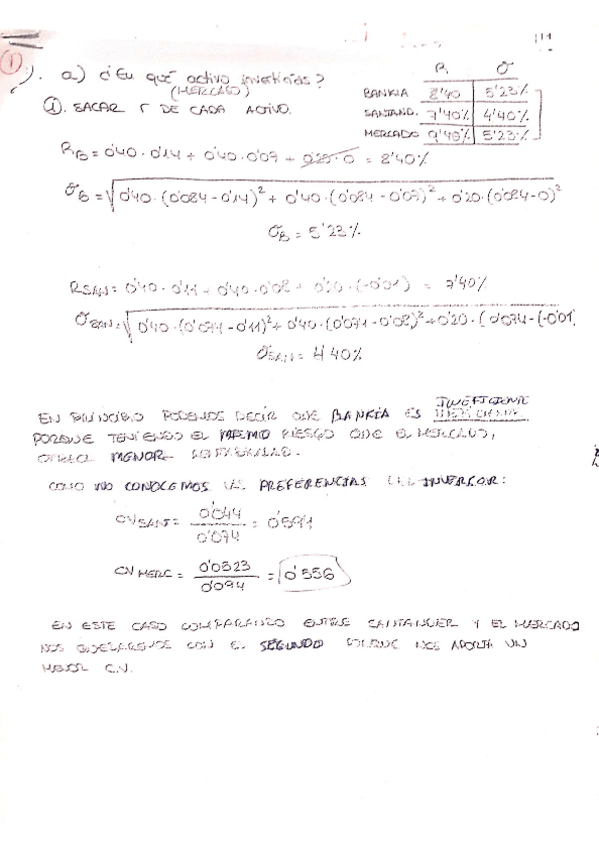 ①). a) ¿En qué activo invertirías?
(MERCADO)
①. SACAR r DE CADA ACTIVO.
R σ
BANKIA 8'40 5'23%
SANTAND. 7'40% 4'40%
MERCADO 9'40% 5'23%
R_B = 0'40 · 0'14 + 0'40 · 0'07 + 0'20 · 0 = 8'40%
σ_B = √0'40 · (0'084 - 0'14)² + 0'40 · (0'084 - 0'07)² + 0'20 · (0'084 - 0)²
σ_B = 5'23%
R_SAN = 0'40 · 0'11 + 0'40 · 0'08 + 0'20 · (-0'01) = 7'40%
σ_SAN = √0'40 · (0'074 - 0'11)² + 0'40 · (0'074 - 0'08)² + 0'20 · (0'074 - (-0'01)
σ_SAN = 4'40%
INEFICIENTE
EN PRINCIPIO PODEMOS DECIR QUE BANKIA ES
PORQUE TENIENDO EL MISMO RIESGO QUE EL MERCADO,
OFRECE MENOR RENTABILIDAD.
COMO NO CONOCEMOS LAS PREFERENCIAS DEL INVERSOR:
CV_SANT = 0'044 / 0'074 = 0'591
CV_MERC = 0'0523 / 0'094 = 0'556
EN ESTE CASO COMPARANDO ENTRE SANTANDER Y EL MERCADO
NOS QUEDAREMOS CON EL SEGUNDO PORQUE NOS APORTA UN
C.V.